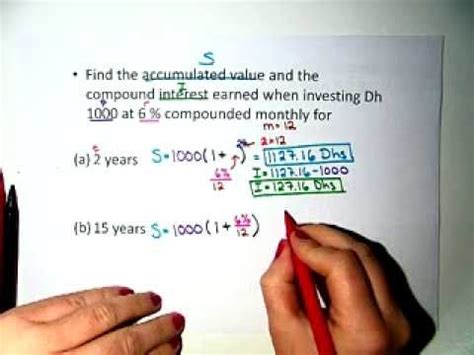 S
• Find the accumulated value and the
I
compound interest earned when investing Dh
1000 at 6 % compounded monthly for
m=12
2×12
(a) 2 years S=1000(1+ ) = 1127.16 Dhs
6%/12
I=1127.16-1000
I=127.16 Dhs
(b) 15 years S=1000(1+6%/12)